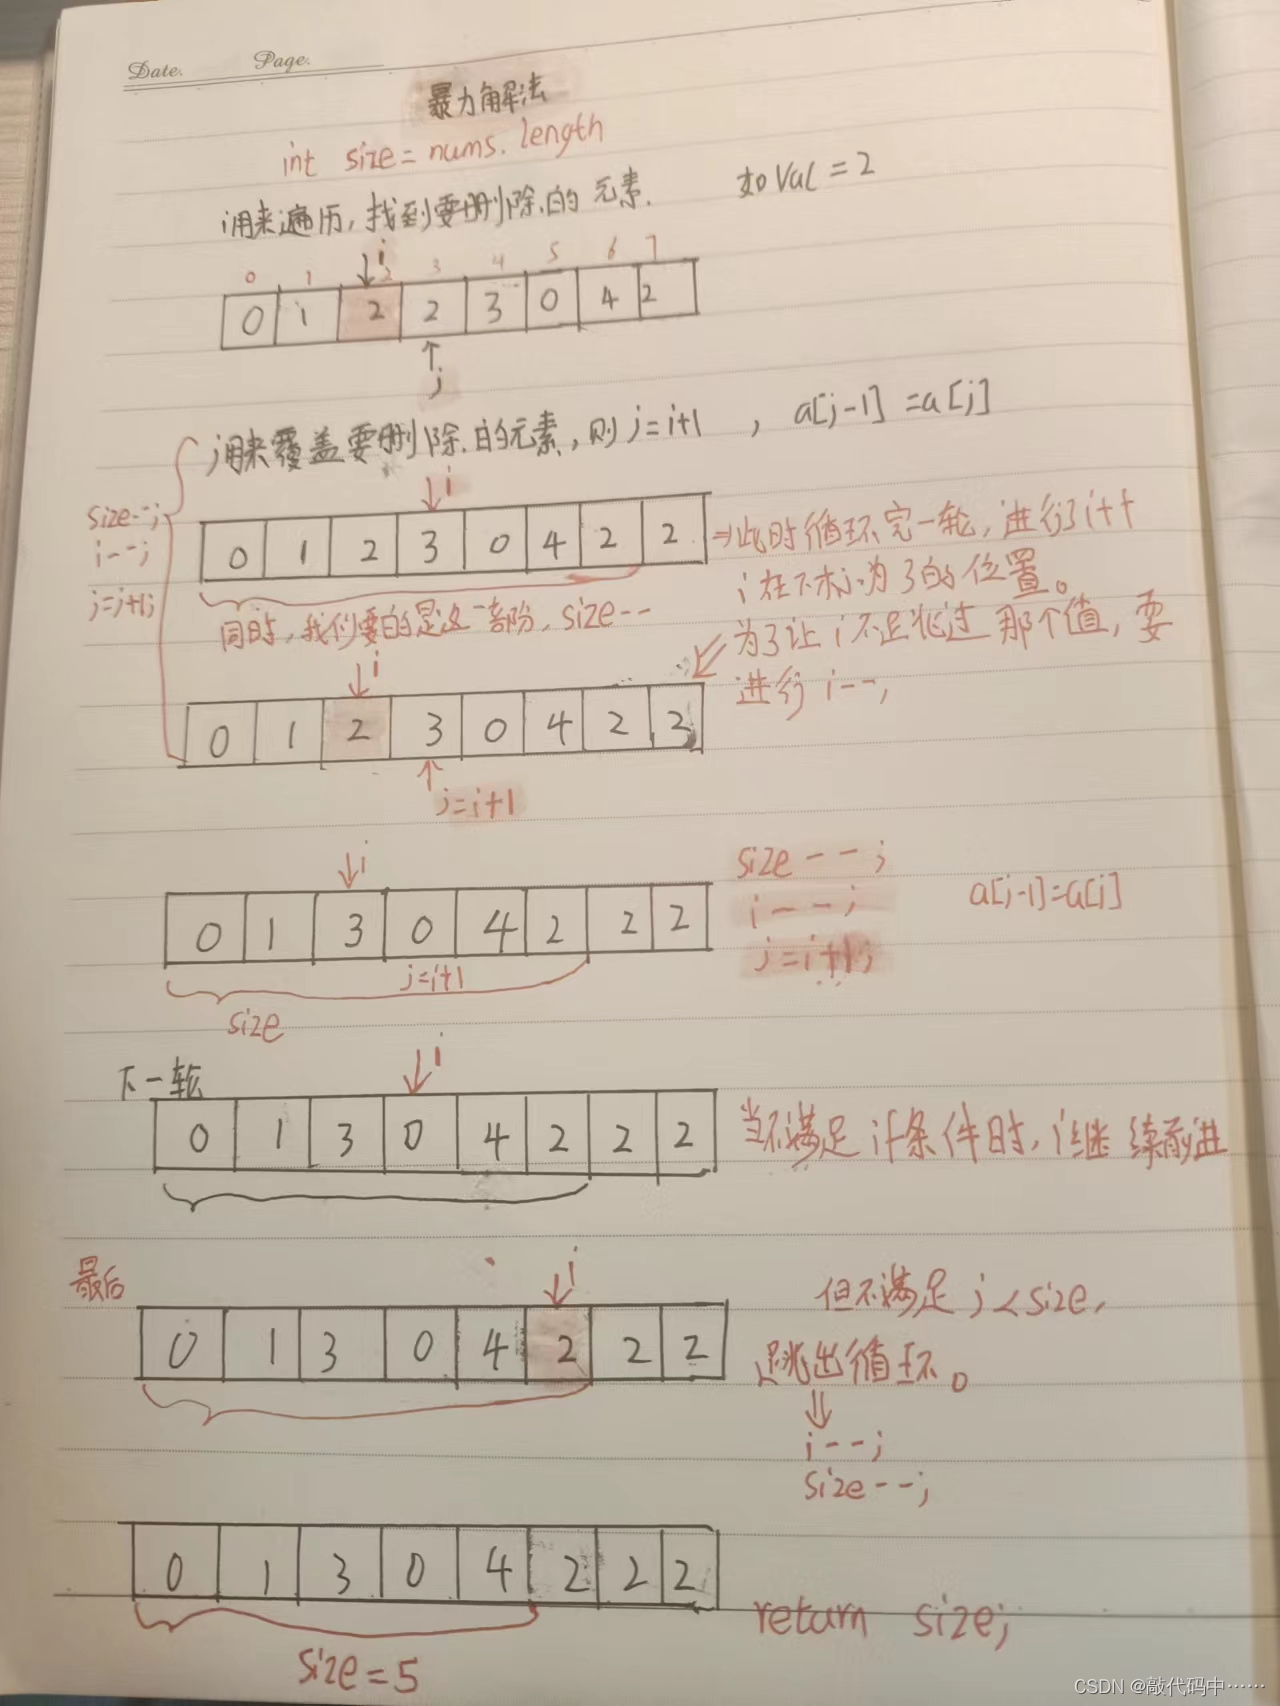 Date. Page.
暴力解法
int size = nums.length
i用来遍历,找到要删除的元素. 如val = 2
i
0 1 2 3 4 5 6 7
0 1 2 2 3 0 4 2
j
j用来覆盖要删除的元素,则j=i+1 , a[j-1]=a[j]
i
size--;
i--;
j=i+1;
0 1 2 3 0 4 2 2
⇒此时循环完一轮,进行了i++
i在下标为3的位置。
同时,我们要的是这一部份,size--
为了让i不跳过那个值,要
进行i--;
i
0 1 2 3 0 4 2 2
j=i+1
i
0 1 3 0 4 2 2 2
size--;
i--;
j=i+1;
a[j-1]=a[j]
j=i+1
size
下一轮
i
0 1 3 0 4 2 2 2
当不满足if条件时,i继续前进
最后
i
0 1 3 0 4 2 2 2
但不满足j<size,
跳出循环。
i--;
size--;
0 1 3 0 4 2 2 2
return size;
size=5
CSDN @敲代码中……